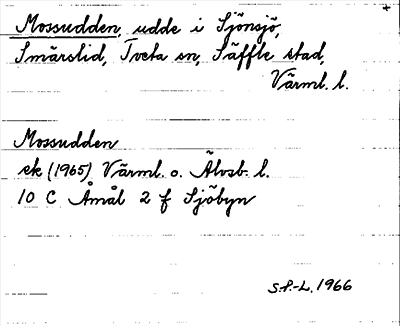 Mossudden, udde i Sjönsjö,
Smärslid, Tveta sn, Säffle stad,
Värml. l.
Mossudden
ek (1965) Värml. o. Älvsb. l.
10 C Åmål 2 f Sjöbyn
S.P.-L. 1966